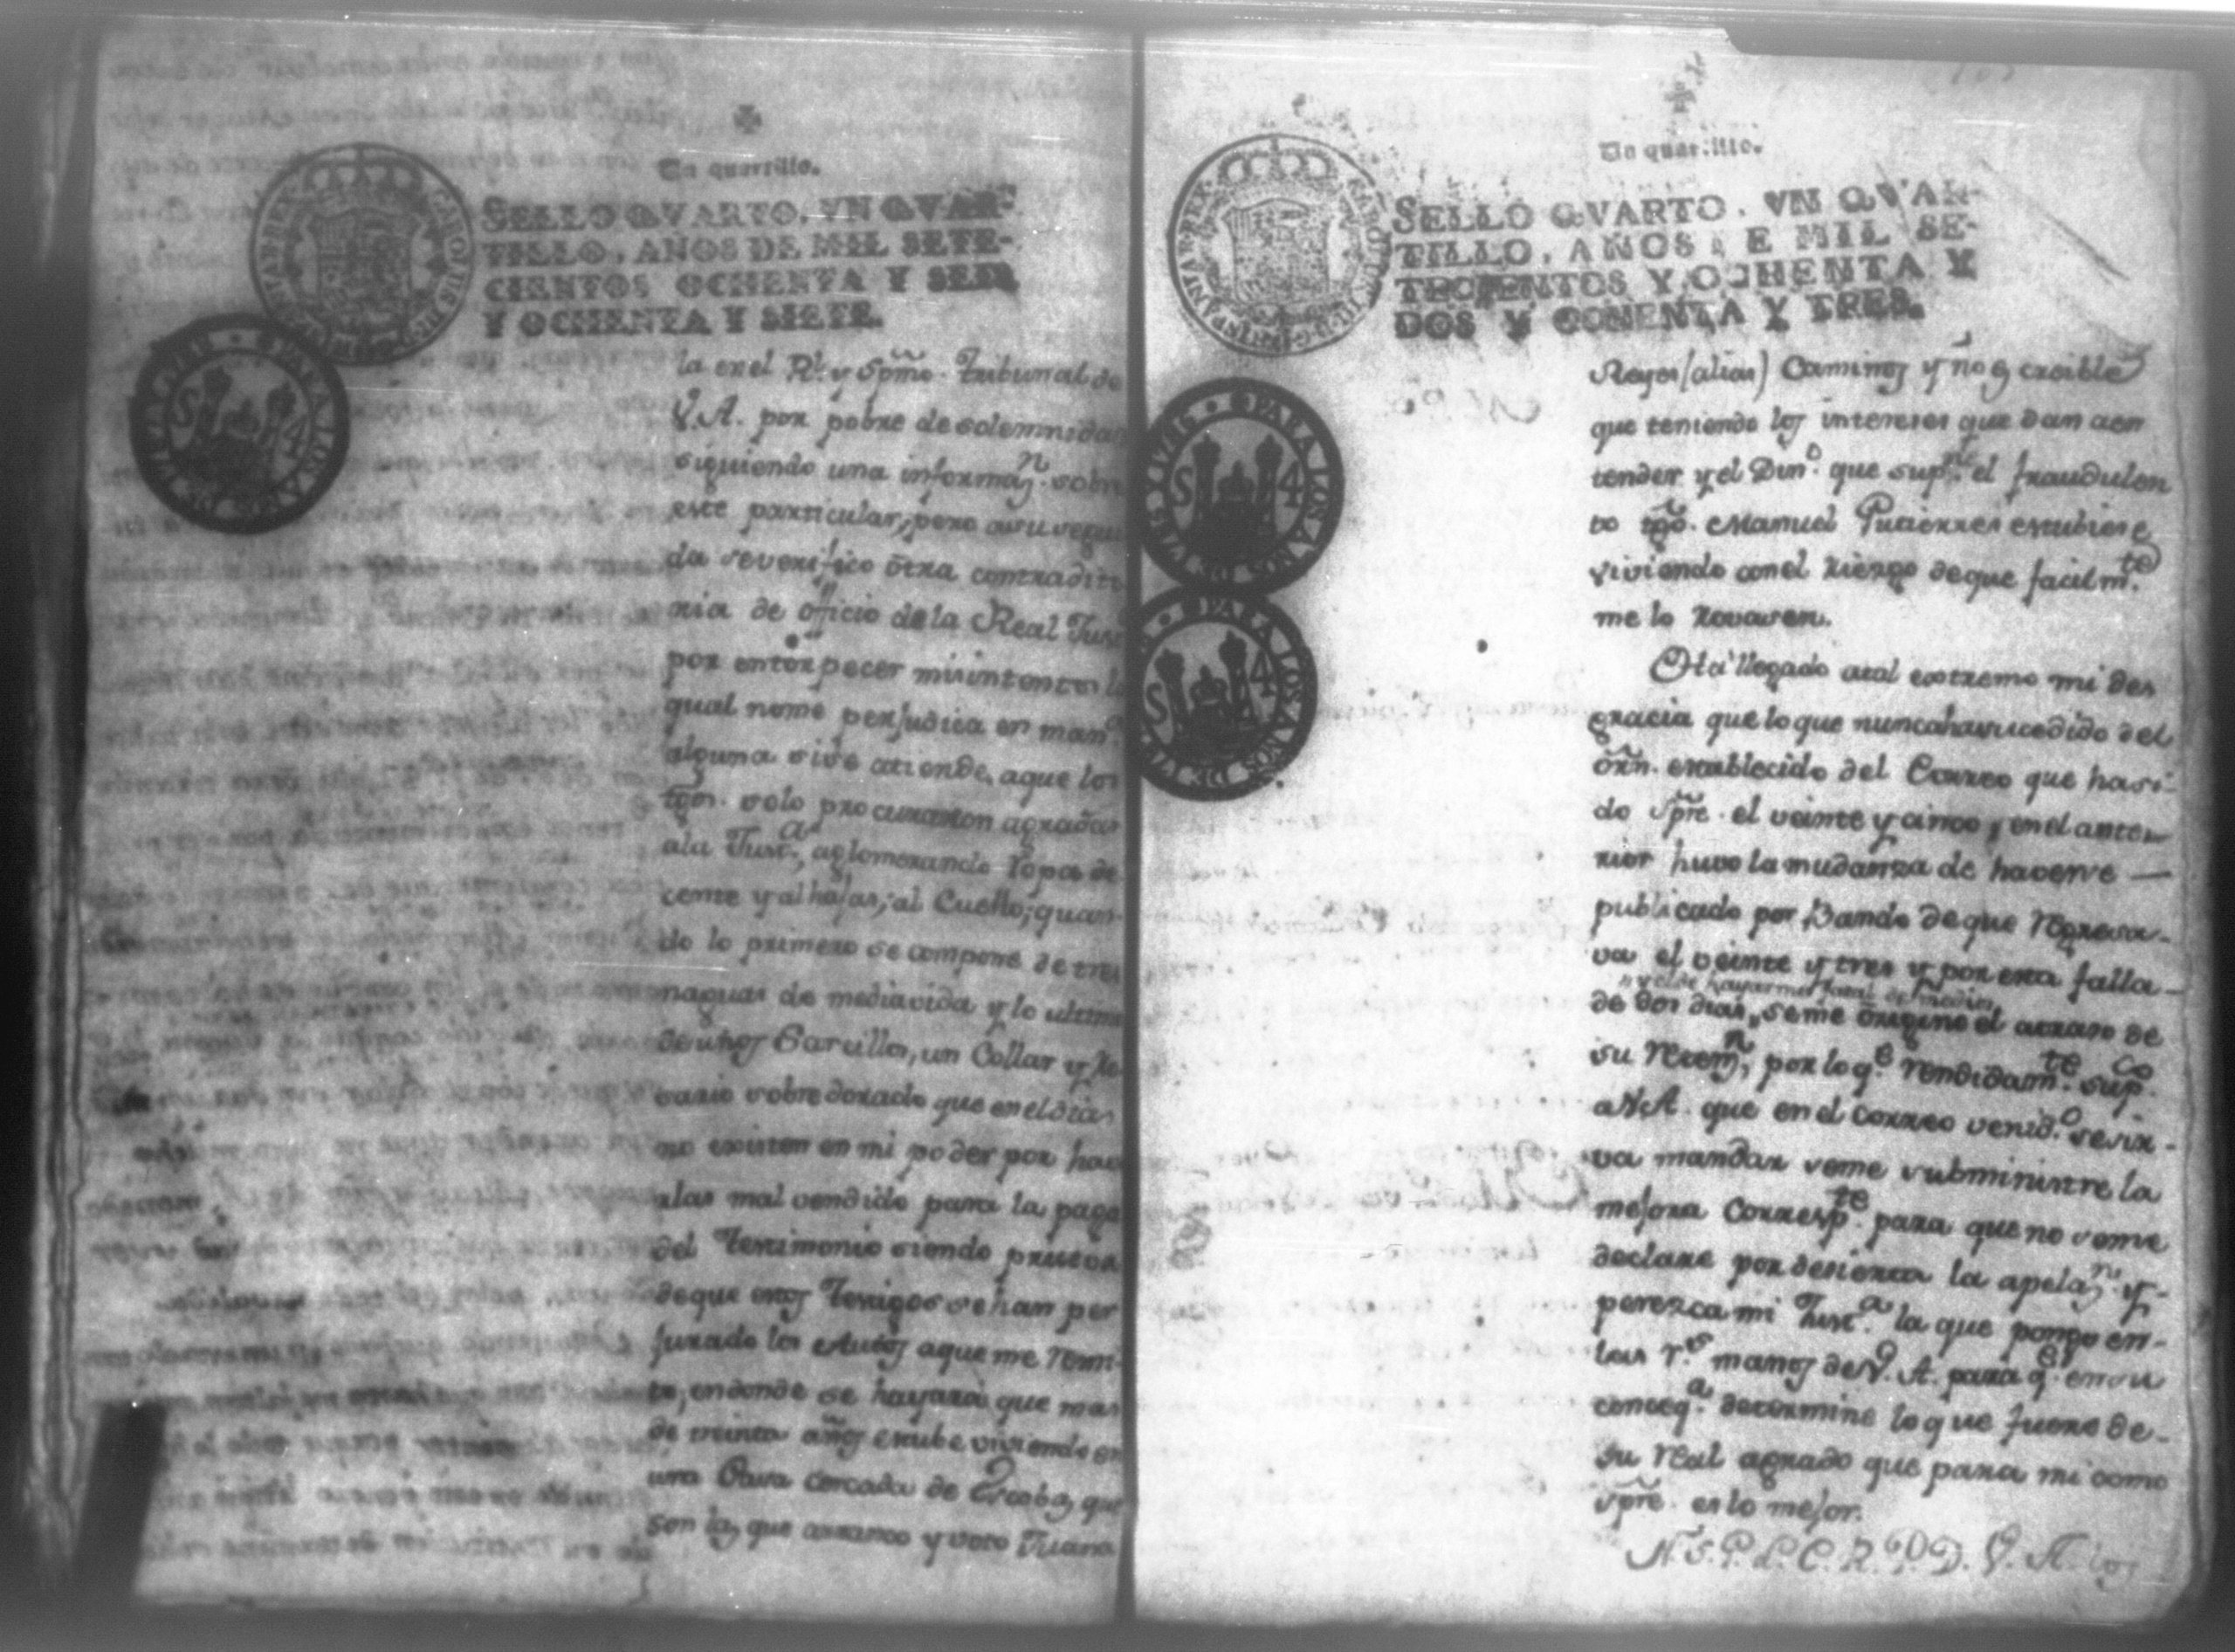 Un quartillo.
SELLO QVARTO, VN QVAR-
TILLO, AÑOS DE MIL SETE-
CIENTOS OCHENTA Y SEIS,
Y OCHENTA Y SIETE.
la en el Rl. y Spmo. Tribunal de
V.A. por pobre de solemnidad
siguiendo una informan. sobre
este particular, pero a su segui
da se verifico otra contradito
ria de oficio de la Real Just
por entorpecer mis intentos la
qual no me perjudica en man.a
alguna si se atiende, a que los
tgos. solo procuraron agradar
a la Just.a, aglomerando ropa de
cente y alhajas, al Cuello, quan-
do lo primero se compone de tres
naguas de media vida y lo ultimo
de unos Sarcillos, un Collar y
sario sobre dorado que en el dia
no existen en mi poder por hav
alas mal vendido para la paga
del Testimonio siendo prueva
de que estos Testigos se han per
jurado los Autos a que me remi-
to, en donde se hayará que mas
de treinta años estube viviendo en
una Casa cercada de Escobas que
son las que arranco y voto Juana
Un quartillo.
SELLO QVARTO, VN QVAR-
TILLO, AÑOS DE MIL SE-
TECIENTOS Y OCHENTA Y
DOS Y OCHENTA Y TRES.
Reyes (alias) Caminos y no es creible
que teniendo los intereses que dan a en
tender y el Din.o que sup.ne el fraudulen
to tgo. Manuel Gutierres estubiese
viviendo con el riesgo de que facilm.te
me lo rovasen.
Ha llegado a tal extremo mi des
gracia que lo que nunca ha sucedido del
orn. establecido del Correo que ha si-
do spre. el veinte y cinco, en el ante-
rior huvo la mudanza de haverse —
publicado por Bando de que regresa-
va el veinte y tres y por esta falla-
y el de hayarme fatal de medios
de dos dias, se me origino el atraso de
su remn, por lo q.e rendidam.te sup.co
a V.A. que en el correo venid.o se sir-
va mandar se me subministre la
mejora Corresp.te para que no se me
declare por desierta la apelan. y-
perezca mi Just.a la que pongo en-
las r.s manos de V.A. para q.e en su
conseq.a determine lo que fuere de-
su real agrado que para mi como
spre. es lo mejor.
N. S. P. L. C. R. P. D. V. A. los
PARA LOS AÑOS DE 1785
S 4
PARA LOS AÑOS DE
S 4